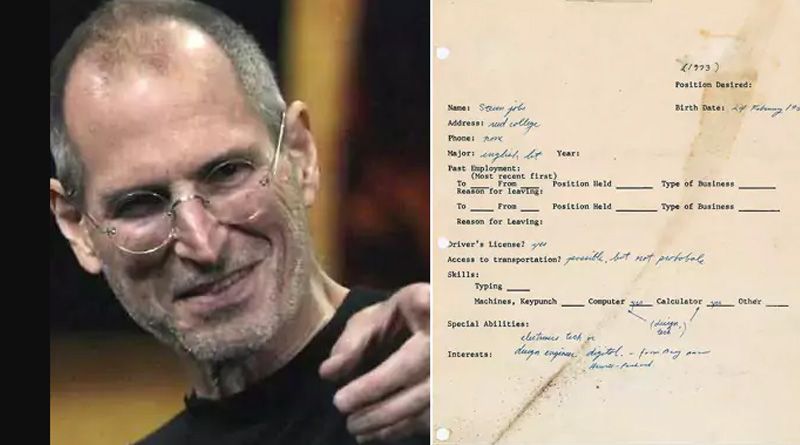 (1973)
Position Desired:
Name: Steven jobs Birth Date: 24 February 19
Address: reed college
Phone: none
Major: english lit Year:
Past Employment:
(Most recent first)
To ____ From ____ Position Held ____ Type of Business ____
Reason for leaving:
To ____ From ____ Position Held ____ Type of Business ____
Reason for Leaving:
Driver's License? yes
Access to transportation? possible, but not probable
Skills:
Typing ____
Machines, Keypunch ____ Computer yes Calculator yes Other ____
(design,
tech)
Special Abilities:
electronics tech or
Interests: design engineer. digital. - from Bay
Hewitt-Packard